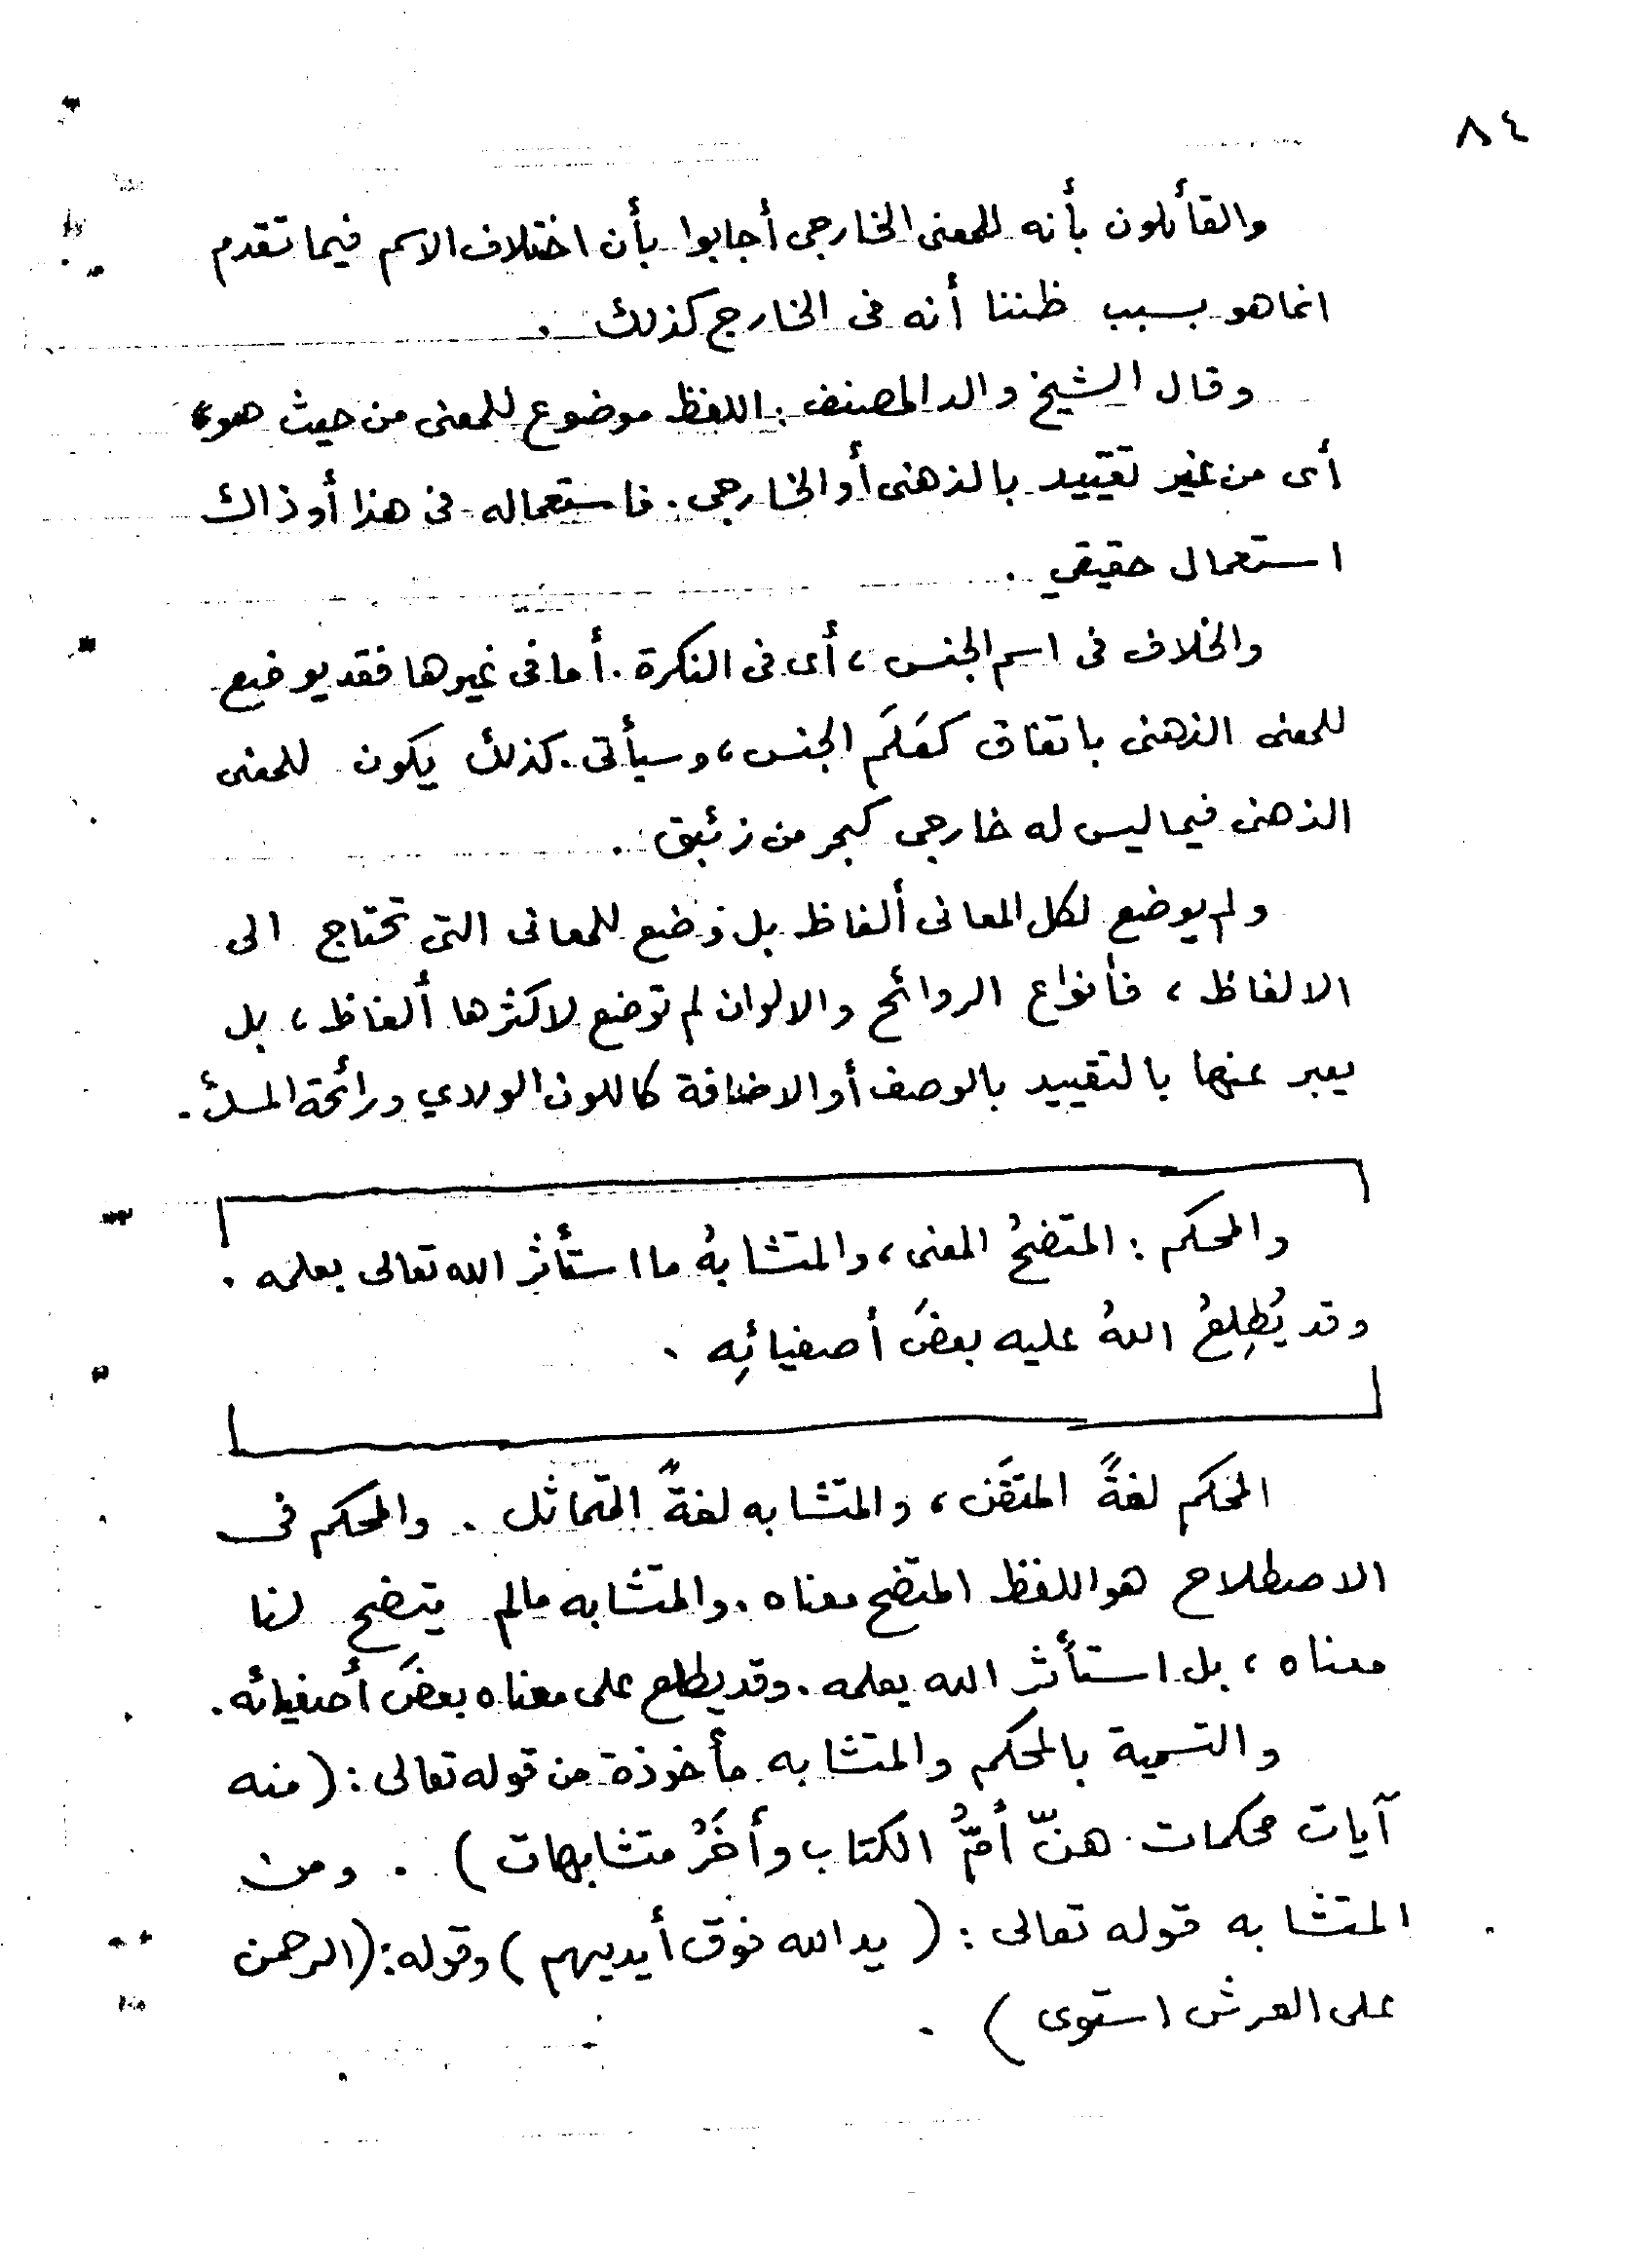 ٨٤
والقائلون بأنه للمعنى الخارجى أجابوا بأن اختلاف الاسم فيما تقدم
انما هو بسبب ظننا أنه فى الخارج كذلك .
وقال الشيخ والد المصنف : اللفظ موضوع للمعنى من حيث هو ،
أى من غير تقييد بالذهنى أو الخارجى . فاستعماله فى هذا أو ذاك
استعمال حقيقي .
والخلاف فى اسم الجنس ، أى فى النكرة . أما فى غيرها فقد يوضع
للمعنى الذهنى باتفاق كعَلَم الجنس ، وسيأتى . كذلك يكون للمعنى
الذهنى فيما ليس له خارجى كبحر من زئبق .
ولم يوضع لكل المعانى ألفاظ بل وُضع للمعانى التى تحتاج الى
الالفاظ ، فأنواع الروائح والالوان لم توضع لاكثرها ألفاظ ، بل
يعبر عنها بالتقييد بالوصف أو الاضافة كاللون الوردي ورائحة المسك .
والمحكم : المتضحُ المعنى ، والمتشابهُ ما استأثر الله تعالى بعلمه .
وقد يُطلِعُ اللهُ عليه بعضَ أصفيائِه .
المحكم لغةً المتقَن ، والمتشابه لغةً المتماثل . والمحكم فى
الاصطلاح هو اللفظ المتضح معناه . والمتشابه مالم يتضح لنا
معناه ، بل استأثر الله بعلمه . وقد يطلع على معناه بعضَ أصفيائه .
والتسمية بالمحكم والمتشابه مأخوذة من قوله تعالى : ( منه
آيات محكمات هنّ أمُّ الكتاب وأخَرُ متشابهات ) . ومن
المتشابه قوله تعالى : ( يد الله فوق أيديهم ) وقوله : ( الرحمن
على العرش استوى ) .